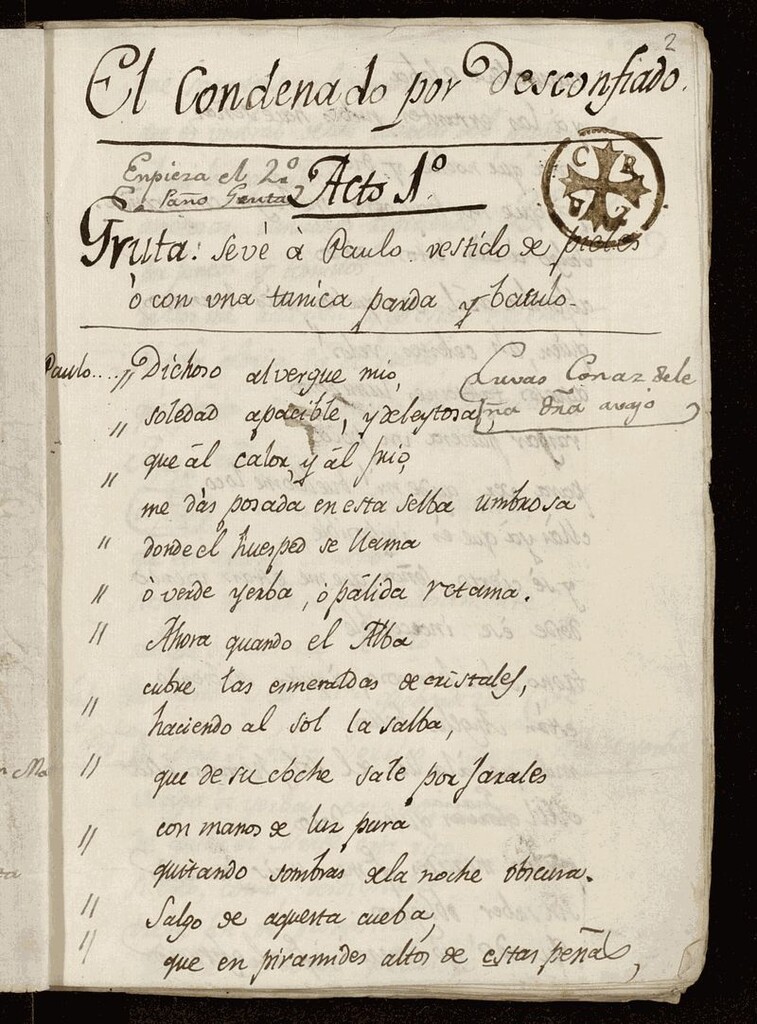 2
El Condenado por Desconfiado.
Enpieza el 2º
Paño Gruta
Acto 1º
Gruta: seve à Paulo vestido de pieles
ò con una tunica parda y baculo.
Paulo.... Dichoso alvergue mio,
soledad apacible, y deleytosa,
que àl calor, y àl frio,
me dàs posada en esta selba umbrosa
donde el huesped se llama
ò verde yerba, ò pàlida retama.
Ahora quando el Alba
cubre las esmeraldas de cristales,
haciendo al sol la salba,
que de su coche sale por Jarales
con manos de luz pura
quitando sombras dela noche obscura.
Salgo de aquesta cueba,
que en piramides altos de estas peñas,